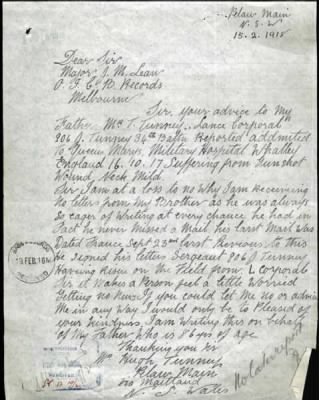 Pelaw Main
N. S. W
15-2-1918
Dear Sir
Major J. M. Lean
O. I. C. B. Records
Melbourne
Sir, your advice to My
Father Mr T. Tunney, Lance Corporal
906 J. Tunney 34th Batty Reported addmited
to Queen Marys Military Hospital Whalley
England 16.10.17 Suffering from Gunshot
Wound, Neck Mild.
Sir I am at a loss to no why I am Receiving
No letters from My Brother as he was always
so eager of Writing at every chance he had in
Fact he never missed a Mail, his last Mail was
Dated France Sept 23rd last Previous to this
he signed his letters Sergeant 906 J Tunney
having rison on the Field from L Corporal
Sir it Makes a Person feel a little Worried
Getting no News if you could let Me no or advise
Me in any Way I would only be to Pleased of
your Kindness, I am Writing this on behalf
of My Father Who is 86 yrs of age
Thanking you Sir
Mr Hugh Tunney
Pelaw Main
via Maitland
N. S. Wales
No later report